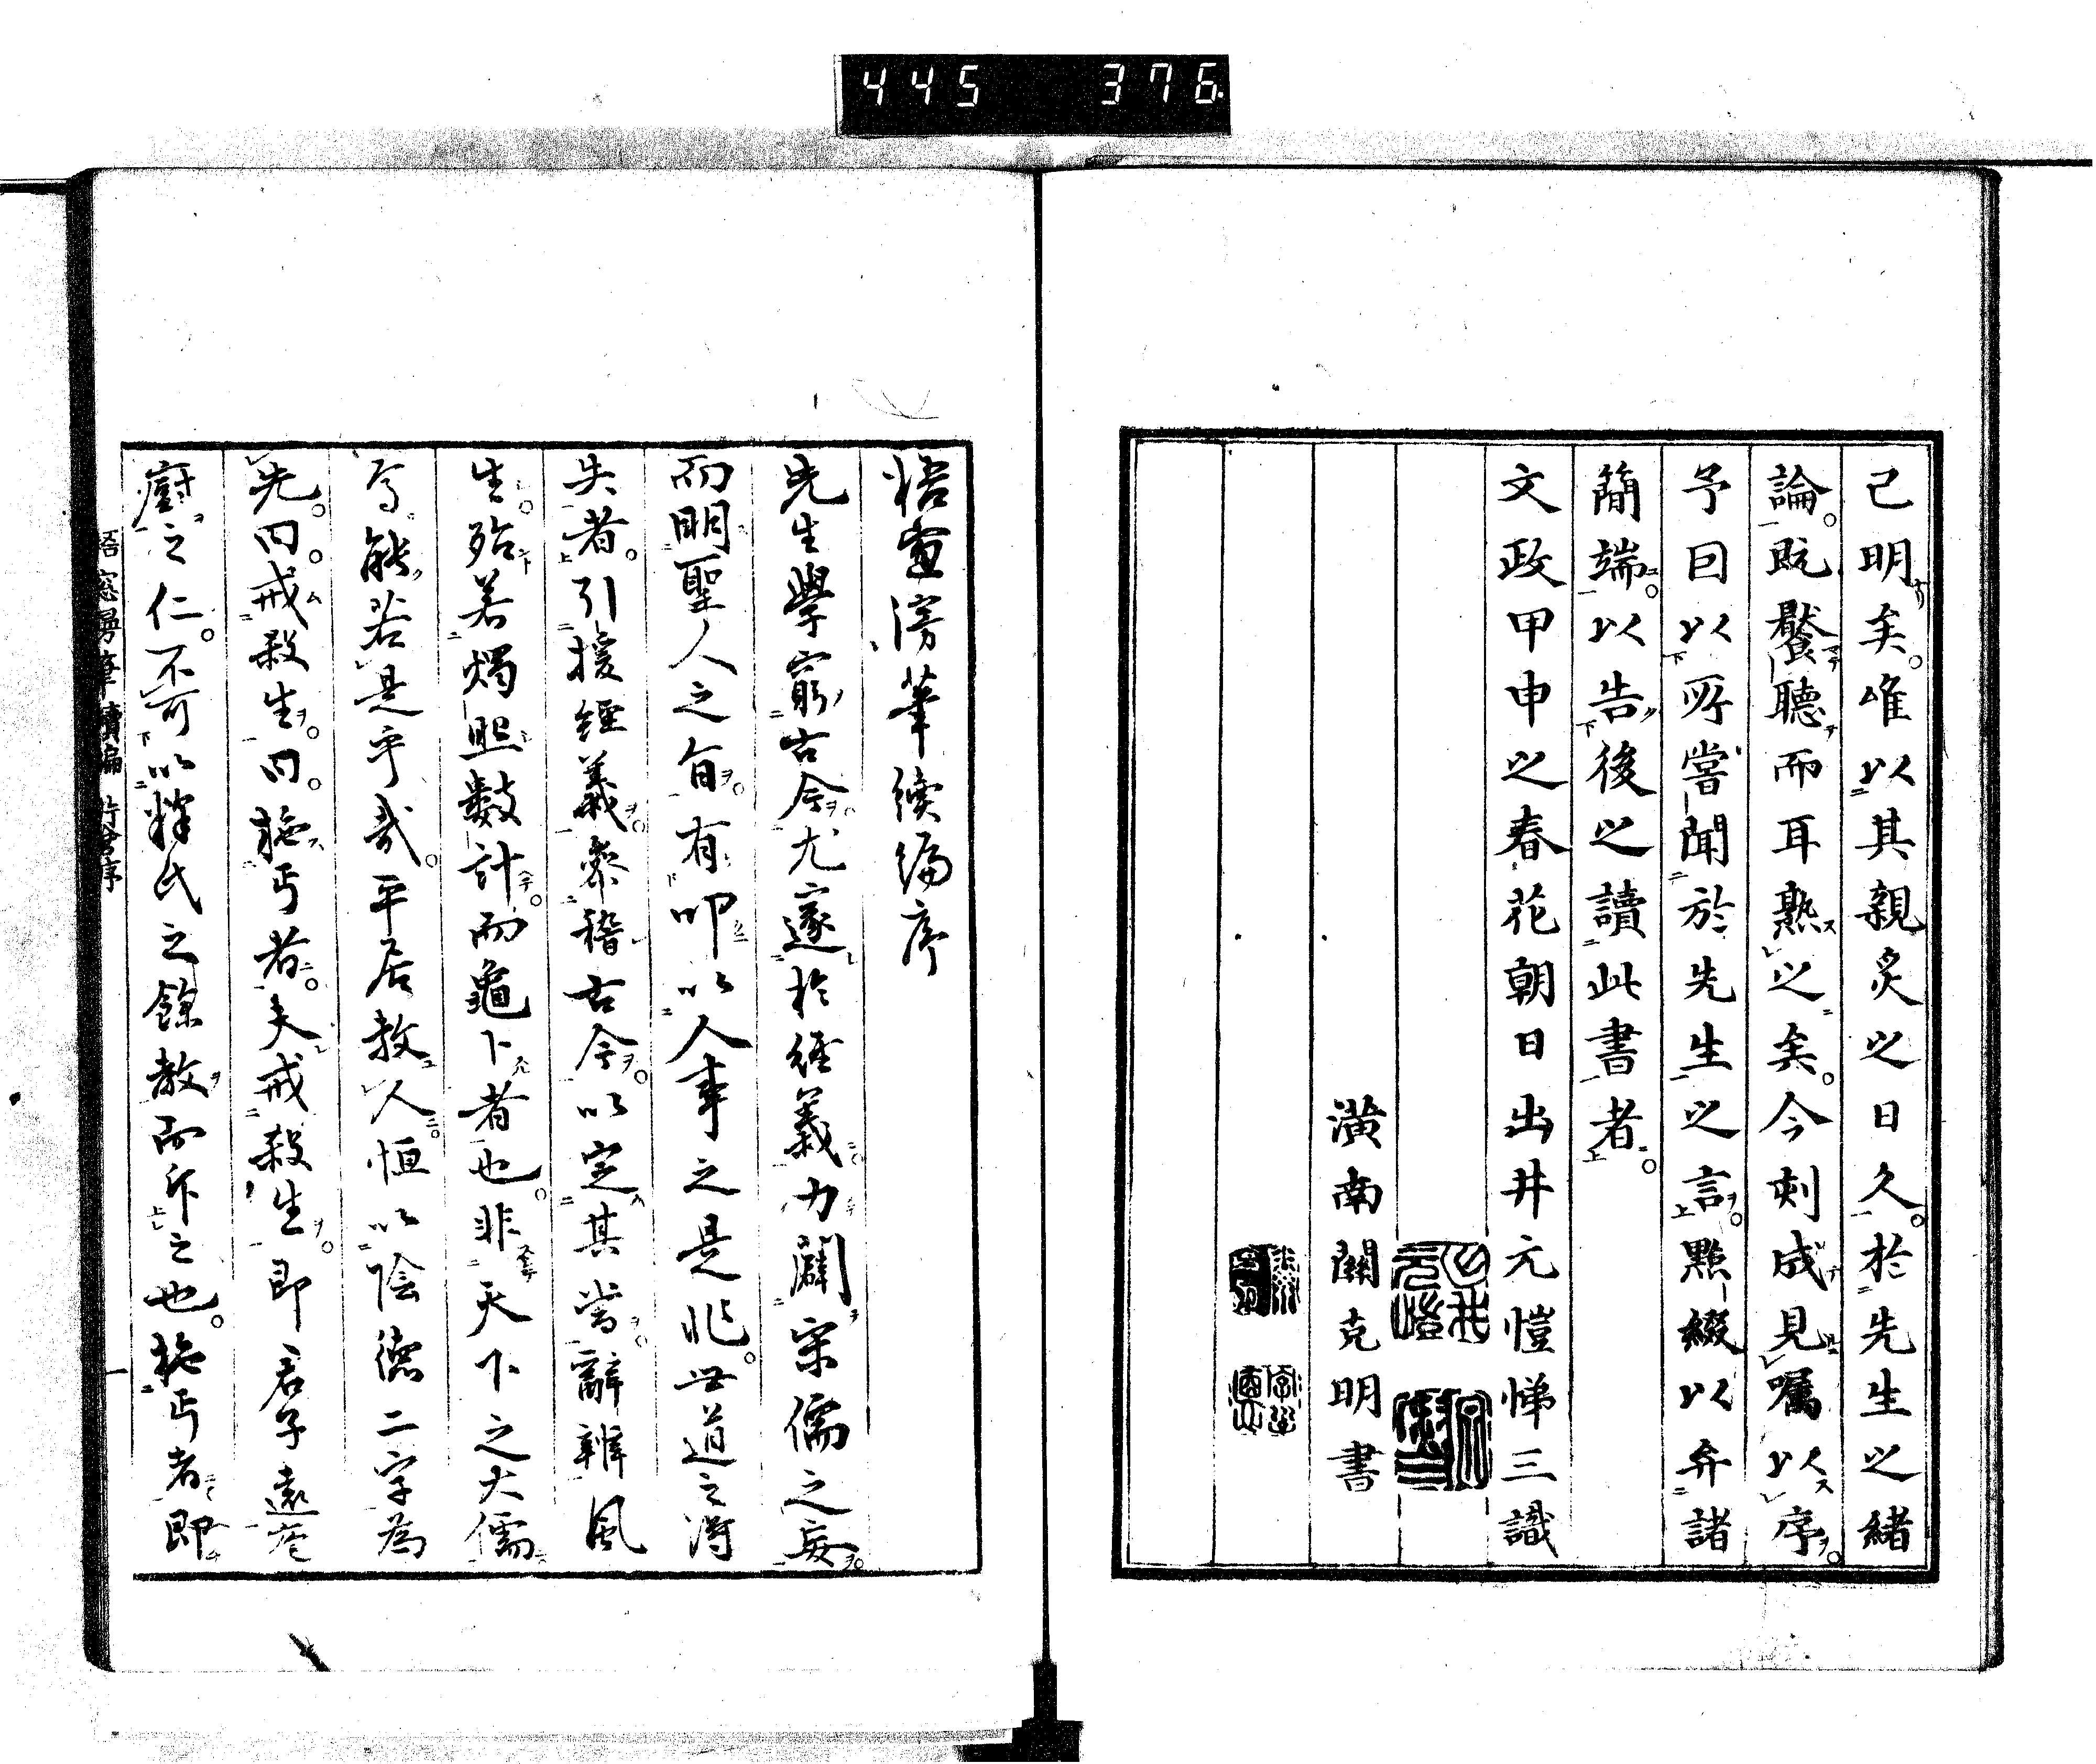 445 376
己明矣。唯以其親炙之日久。於先生之緒
論。既饜聽而耳熟之矣。今刻成見囑以序。
予曰以所嘗聞於先生之言。點綴以弁諸
簡端。以告後之讀此書者。
文政甲申之春花朝日出井元愷悌三識
潢南關克明書
梧窗漫筆續編序
先生學窮古今。尤邃於經義。力闢宋儒之妄。
而明聖人之旨。有叩以人事之是非。世道之得
失者。引援經義。參稽古今。以定其當。辭辨風
生。殆若燭照數計。而龜卜者也。非天下之大儒
焉能若是乎哉。平居教人。恒以陰德二字為
先。曰。戒殺生。曰。施丐者。夫戒殺生。即君子遠庖
廚之仁。不可以釋氏之餘教而斥之也。施丐者即
梧窓漫筆續編
序
一